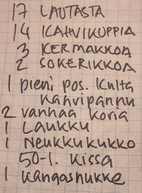 17 LAUTASTA
14 KAHVIKUPPIA
3 KERMAKKOA
2 SOKERIKKOA
1 pieni pos. kulta
kahvipannu
2 vanhaa koria
1 Laukku
1 Neukkukukko
50-l. kissa
1 kangasnukke